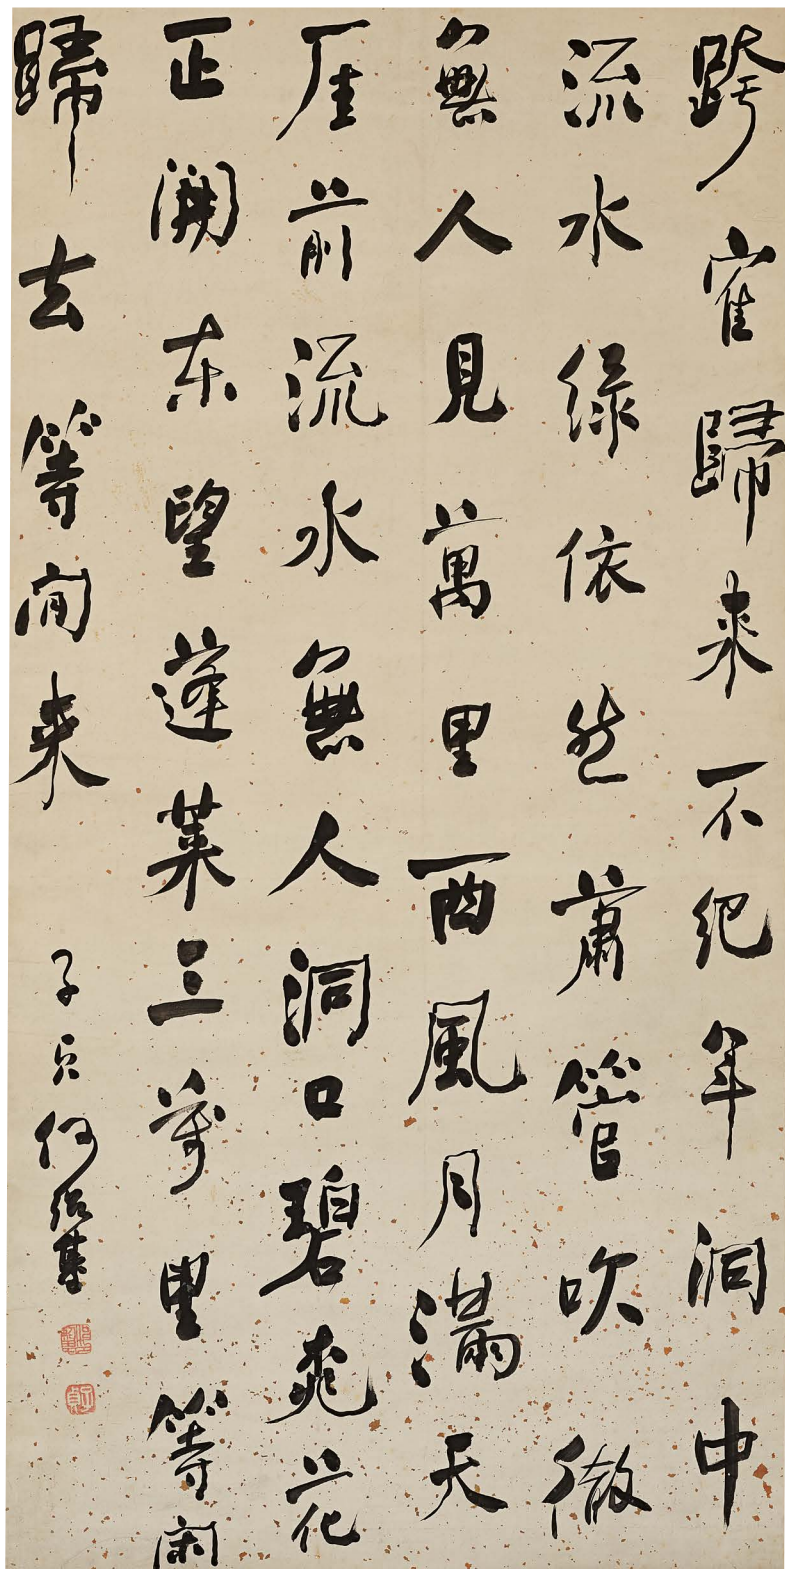 跨隺歸来不紀年洞中
流水緑依然蕭管吹徹
無人見萬里西風月滿天
厓前流水無人洞口碧桃花
正開东望蓬萊三萬里等閑
歸去等閒来
子貞何紹基